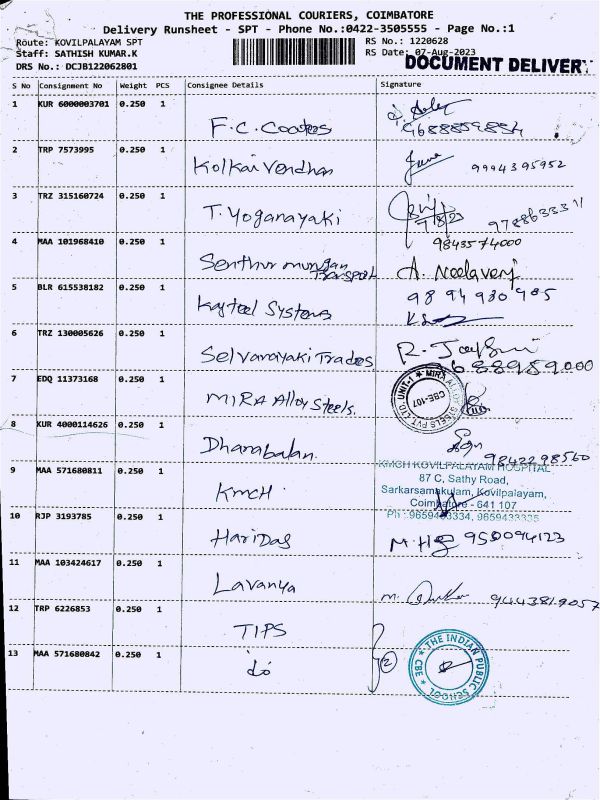 THE PROFESSIONAL COURIERS, COIMBATORE
Delivery Runsheet - SPT - Phone No.:0422-3505555 - Page No.:1
Route: KOVILPALAYAM SPT RS No.: 1220628
Staff: SATHISH KUMAR.K RS Date: 07-Aug-2023
DRS No.: DCJB122062801 DOCUMENT DELIVERY
S No Consignment No Weight PCS Consignee Details Signature
1 KUR 6000003701 0.250 1
F.C. Coates 9688859854
2 TRP 7573995 0.250 1
Kolkai Vendhan 9994395952
3 TRZ 315160724 0.250 1
T. Yoganayaki 7/8/23
4 MAA 101968410 0.250 1 9843574000
Senthur murugan Transport A. Neelaveni
5 BLR 615538182 0.250 1 9894930905
Kayteel Systems
6 TRZ 130005626 0.250 1
Selvanayaki Trades R.
9688989000
7 EDQ 11373168 0.250 1
MIRA Alloy Steels. MIRA ALLOY STEELS PVT LTD. UNIT-1 CBE-107
8 KUR 4000114626 0.250 1
Dharabalan. 9842298560
9 MAA 571680811 0.250 1 KMCH KOVILPALAYAM HOSPITAL
87 C, Sathy Road,
KMCH Sarkarsamakulam, Kovilpalayam,
Coimbatore - 641 107
10 RJP 3193785 0.250 1
HariDas M.H 950094123
11 MAA 103424617 0.250 1
Lavanya M. 9443819057
12 TRP 6226853 0.250 1
TIPS
13 MAA 571680842 0.250 1
do 2 THE INDIAN PUBLIC SCHOOL CBE